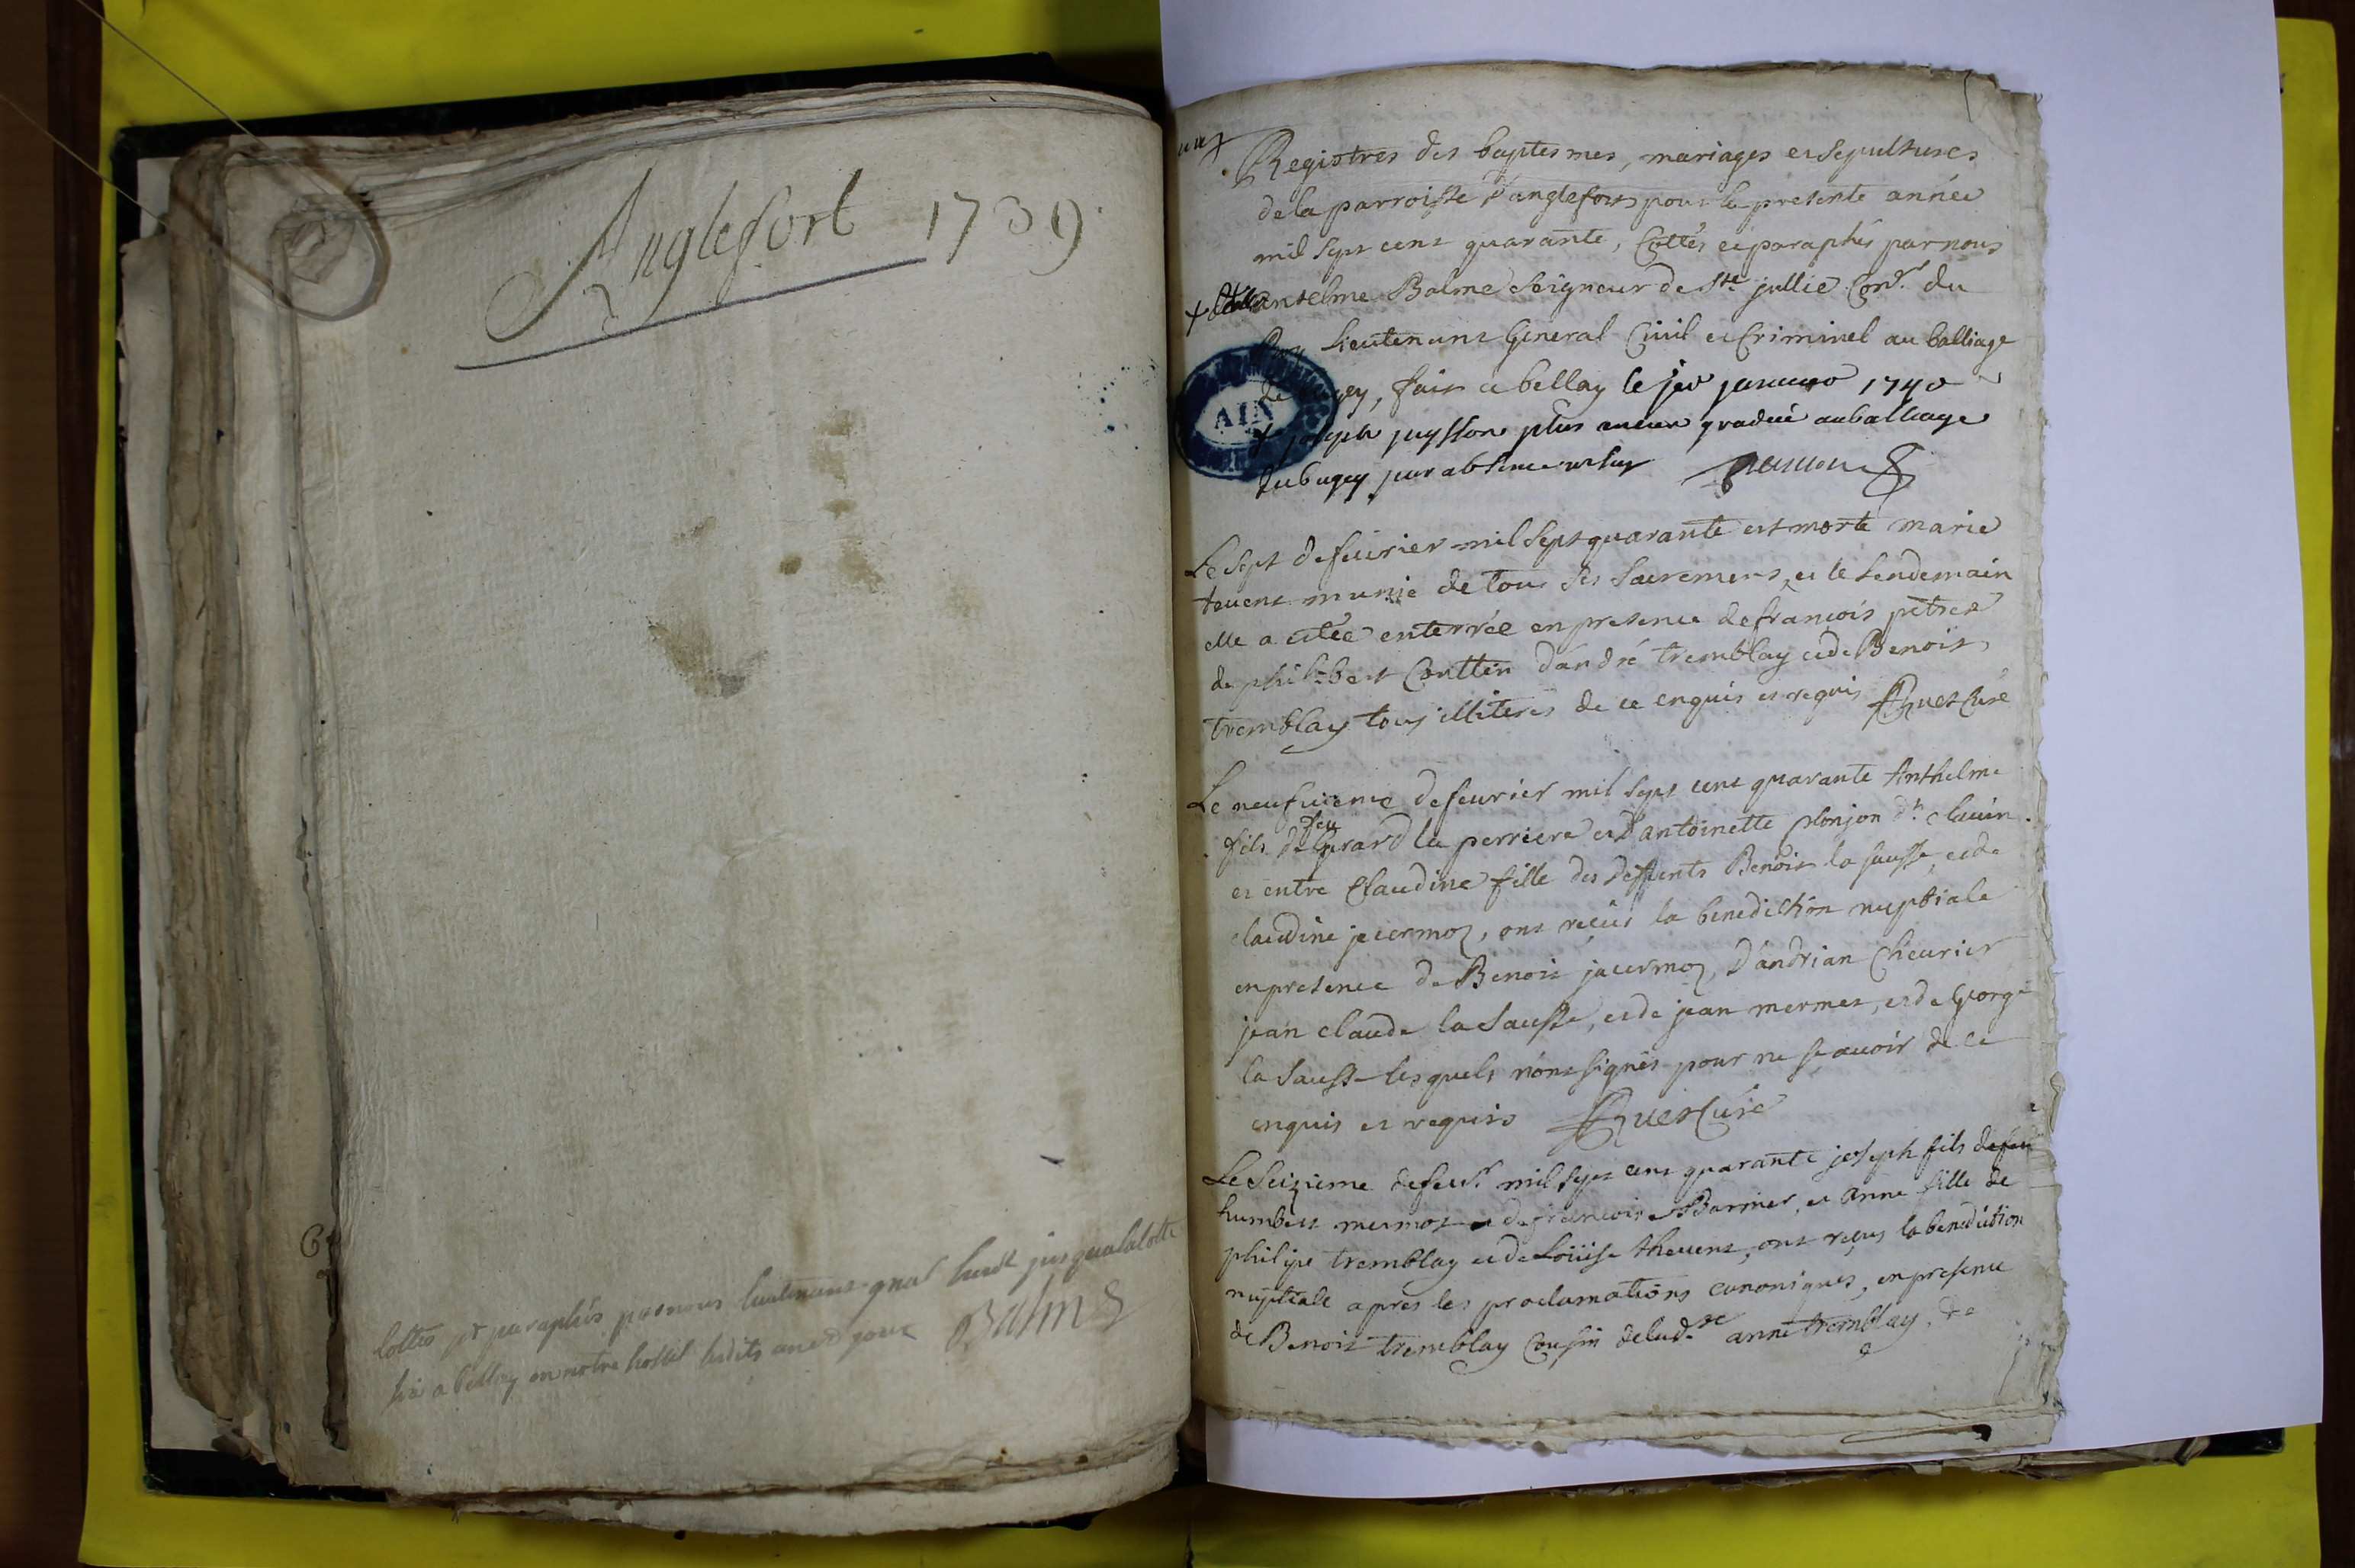 Anglefort 1739
Cottés et paraphés par nous lieutenant gnal jusqu'a la cotte
a bellay en notre hostel lesdits an et jour Balme
Registres des baptesmes, mariages et sepultures
de la parroisse d'anglefort pour la presente année
mil sept cent quarante, Cottés et paraphés par nous
+ anselme Balme seigneur de Ste jullie Conr. du
Roy lieutenant General Civil et Criminel au balliage
de bugey, fait a bellay le jer janvier 1740
+ joseph juysson plus ancien gradué au balliage
du bugey par absence
AIN
Le sept de feuvrier mil sept quarante est morte marie
tevent munie de tous ses sacremens, et le lendemain
elle a estée enterrée en presence de françois
de philibert Conttin d'andré tremblay et de Benoist
tremblay tous illiterés de ce enquis et requis Cure
Le neufvieme de feuvrier mil sept cent quarante Anthelme
fils de feu la perriere et d'antoinette plonjon
et entre Claudine fille des deffunts Benoist la sausse, et de
claudine jacermoz, ont reçus la benediction nuptiale
en presence de Benoit jacermoz, d'andrian Cheurier
jean claude la sausse, et de jean mermet, et de George
la sausse lesquels n'ont signés pour ne sçavoir de ce
enquis et requis Curé
Le seizieme de feur. mil sept cent quarante joseph fils de feu
humbert mermet et de francoise Barrier, et anne fille de
philipe tremblay et de Loüise thevent, ont reçus la benediction
nuptiale apres les proclamations canoniques, en presence
de Benoit tremblay Cousin de lad. anne tremblay, de